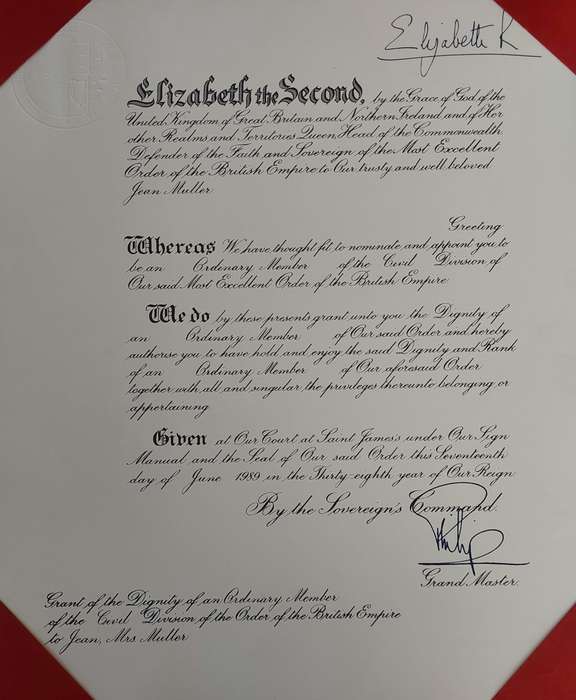 Elizabeth R
Elizabeth the Second, by the Grace of God of the
United Kingdom of Great Britain and Northern Ireland and of Her
other Realms and Territories Queen, Head of the Commonwealth
Defender of the Faith and Sovereign of the Most Excellent
Order of the British Empire to Our trusty and well beloved
Jean Muller
Greeting
Whereas We have thought fit to nominate and appoint you to
be an Ordinary Member of the Civil Division of
Our said Most Excellent Order of the British Empire
We do by these presents grant unto you the Dignity of
an Ordinary Member of Our said Order and hereby
authorise you to have hold and enjoy the said Dignity and Rank
of an Ordinary Member of Our aforesaid Order
together with all and singular the privileges thereunto belonging or
appertaining.
Given at Our Court at Saint James's under Our Sign
Manual and the Seal of Our said Order this Seventeenth
day of June 1989 in the Thirty-eighth year of Our Reign
By the Sovereign's Command.
Philip
Grand Master.
Grant of the Dignity of an Ordinary Member
of the Civil Division of the Order of the British Empire
to Jean, Mrs Muller